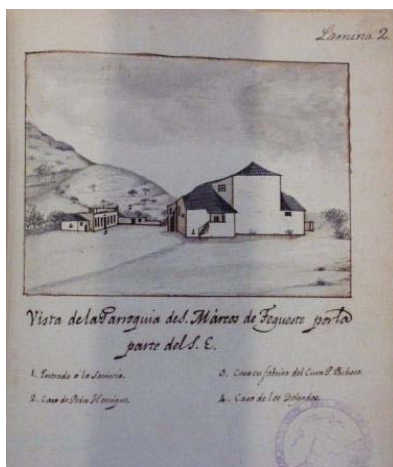 Lamina 2.
Vista de la Parroquia de S. Márcos de Tegueste por la
parte del S. E.
1. Entrada à la Sacristia.
2. Casa de Pedro Henriquez.
3. Casa en fabrica del Cura P. Pacheco.
4. Casa de los